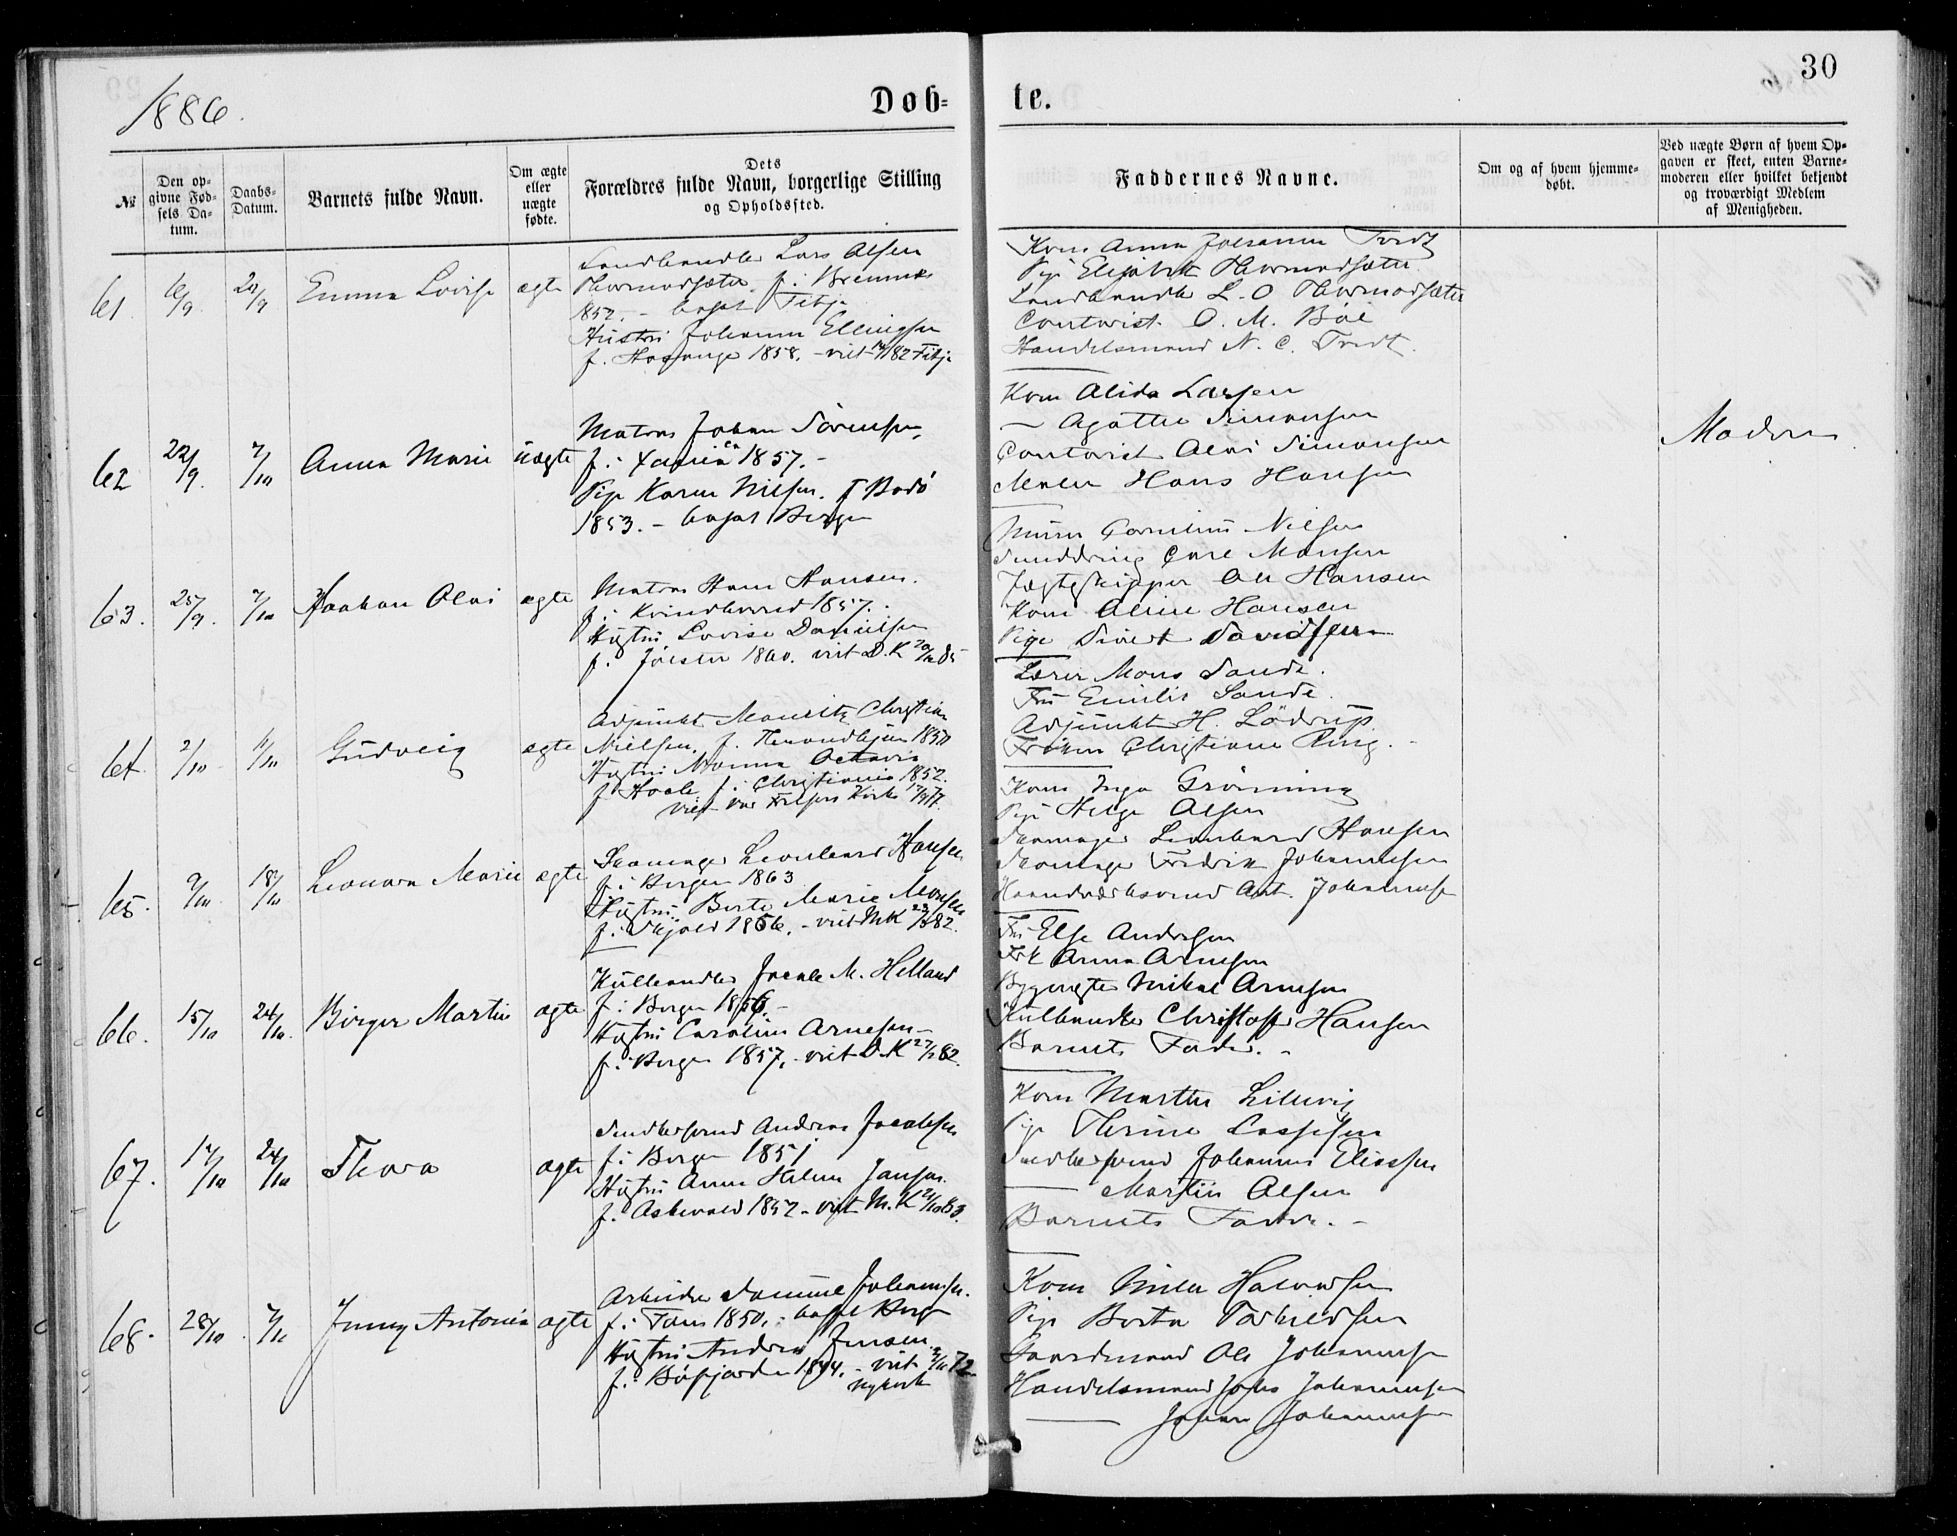 30
1886.
Døb-
te.
№
Den op-
givne Fød-
sels Da-
tum.
Daabs-
Datum.
Barnets fulde Navn.
Om ægte
eller
uægte
fødte.
Dets
Forældres fulde Navn, borgerlige Stilling
og Opholdssted.
Faddernes Navne.
Om og af hvem hjemme-
døbt.
Ved uægte Børn af hvem Op-
gaven er skeet, enten Barne-
moderen eller hvilket bekjendt
og troværdigt Medlem
af Menigheden.
61.
6/9
Emma Lovise
ægte
Landhandler Lars Olsen
Thormodsæter. f.
1852. - bosat Fitje
Hustru Johanna Ellingsen
f. 1858. - viet 82 Fitje
Kone Anna Johanna
Pige Elisabet Thormodsæter
Landhandler L. O Thormodsæter
Contorist O. M. Bøe
Handelsmand N. C.
62
22/9.
7/10
Anna Marie
uægte
Matros Johan Sørensen,
f. 1857. -
Pige Karen Nilsen. f Bodø
1853. - bosat Bergen
Kone Alida Larsen
— Agathe Simonsen
Contorist Olai Simonsen
Maler Hans Hansen
Moderen
63.
25/9.
7/10
Haakon Olai
ægte
Matros Hans Hansen.
f. Kvindherred 1857.
Hustru Lovise Danielsen
f. Jølster 1860. viet D.K 85
Murer Cornelius Nielsen
Carl Monsen
Jægteskipper Ole Hansen
Kone Oline Hansen
Pige Sivert Davidsen
64.
2/10
11/10
Gudveig
ægte
Adjunkt Mauritz Christian
Nielsen. f. Throndhjem
Hustru Octavia
f. Christiania 1852.
viet Vor Frelsers Kirke
Lærer Mons Sande.
Fru Emilie Sande.
Adjunkt H. Lødrup
Frøken Christiane Ring. -
65.
9/10
18/10
Leonora Marie
ægte
Skomager Leonhard Hansen
f. Bergen 1863
Hustru Berte Marie Monsen
f. Skjold 1856. - viet N.K 82.
Kone Inga Grønning
Pige Helga Olsen
Skomager Leonhard Hansen
Skomager Fredrik Johannesen
Haandværksvend Ant. Johannesen
66.
15/10
24/10.
Birger Martin
ægte
Kulhandler Jacob M. Helland
f. Bergen 1856. -
Hustru Caroline Arnesen -
f. Bergen 1857. - viet D.K 82.
Fru Else Andersen
Frk Anna Arnesen
Mikal Arnesen
Kulhandler Christoffer Hansen
Barnets Fader. -
67.
17/10
24/10
Thora
ægte
Snedkersvend Andreas Jacobsen
f. Bergen 1851
Hustru Anne Helene Jansen.
f. Askevold 1852 - viet N.K 83.
Kone Marthe Lillevig
Pige Therine
Snedkersvend Johannes Eliassen
— Martin Olsen
Barnets Fader. -
68.
28/10
7/11
Jenny Antonia
ægte
Arbeider Samuel Johannesen.
f. Fane 1850. - bosat Bergen
Hustru Andrea Jensen
f. 1844. - viet 72
Nykirken
Kone Halvorsen
Pige Berta Torkildsen
Ole Johannesen
Handelsmand Johannesen
— Johan Johannesen